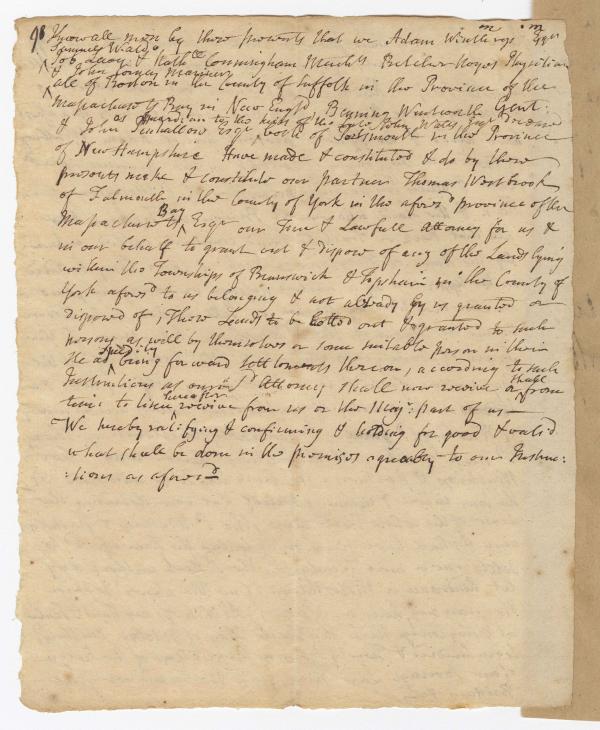 98 Know all men by these presents that we Adam Winthrop Esqr
Samuel Waldo
Job Lewis & Nathll Cunningham Merchts Belcher Noyes Physitian
& John Jones Mariner
all of Boston in the County of Suffolk in the Province of the
Massachusets Bay in New Engld Benning Wentworth Gent:
as Guardian to the heirs of the
& John Penhallow Esqr both of Portsmouth in the Province
of New Hampshire Have made & constituted & do by these
presents make & constitute our partner Thomas Westbrook
of Falmouth in the County of York in the aforesd province of the
Massachusets Bay Esqr our True & Lawfull Attorney for us &
in our behalf to grant out & dispose of any of the Lands lying
within the Townships of Brunswick & Topsham in the County of
York aforesd to us belonging & not already by us granted or
disposed of; Those Lands to be lotted out & granted to such
persons as will by themselves or some suitable person in their
stead speedily bring forward settlements thereon, according to such
Instructions as our sd Attorney shall now receive or shall from
time to time hereafter receive from us or the Majr: part of us—
We hereby ratifying & confirming & holding for good & valid
what shall be done in the premises agreeably to our Instruc:
:tions as aforesd—